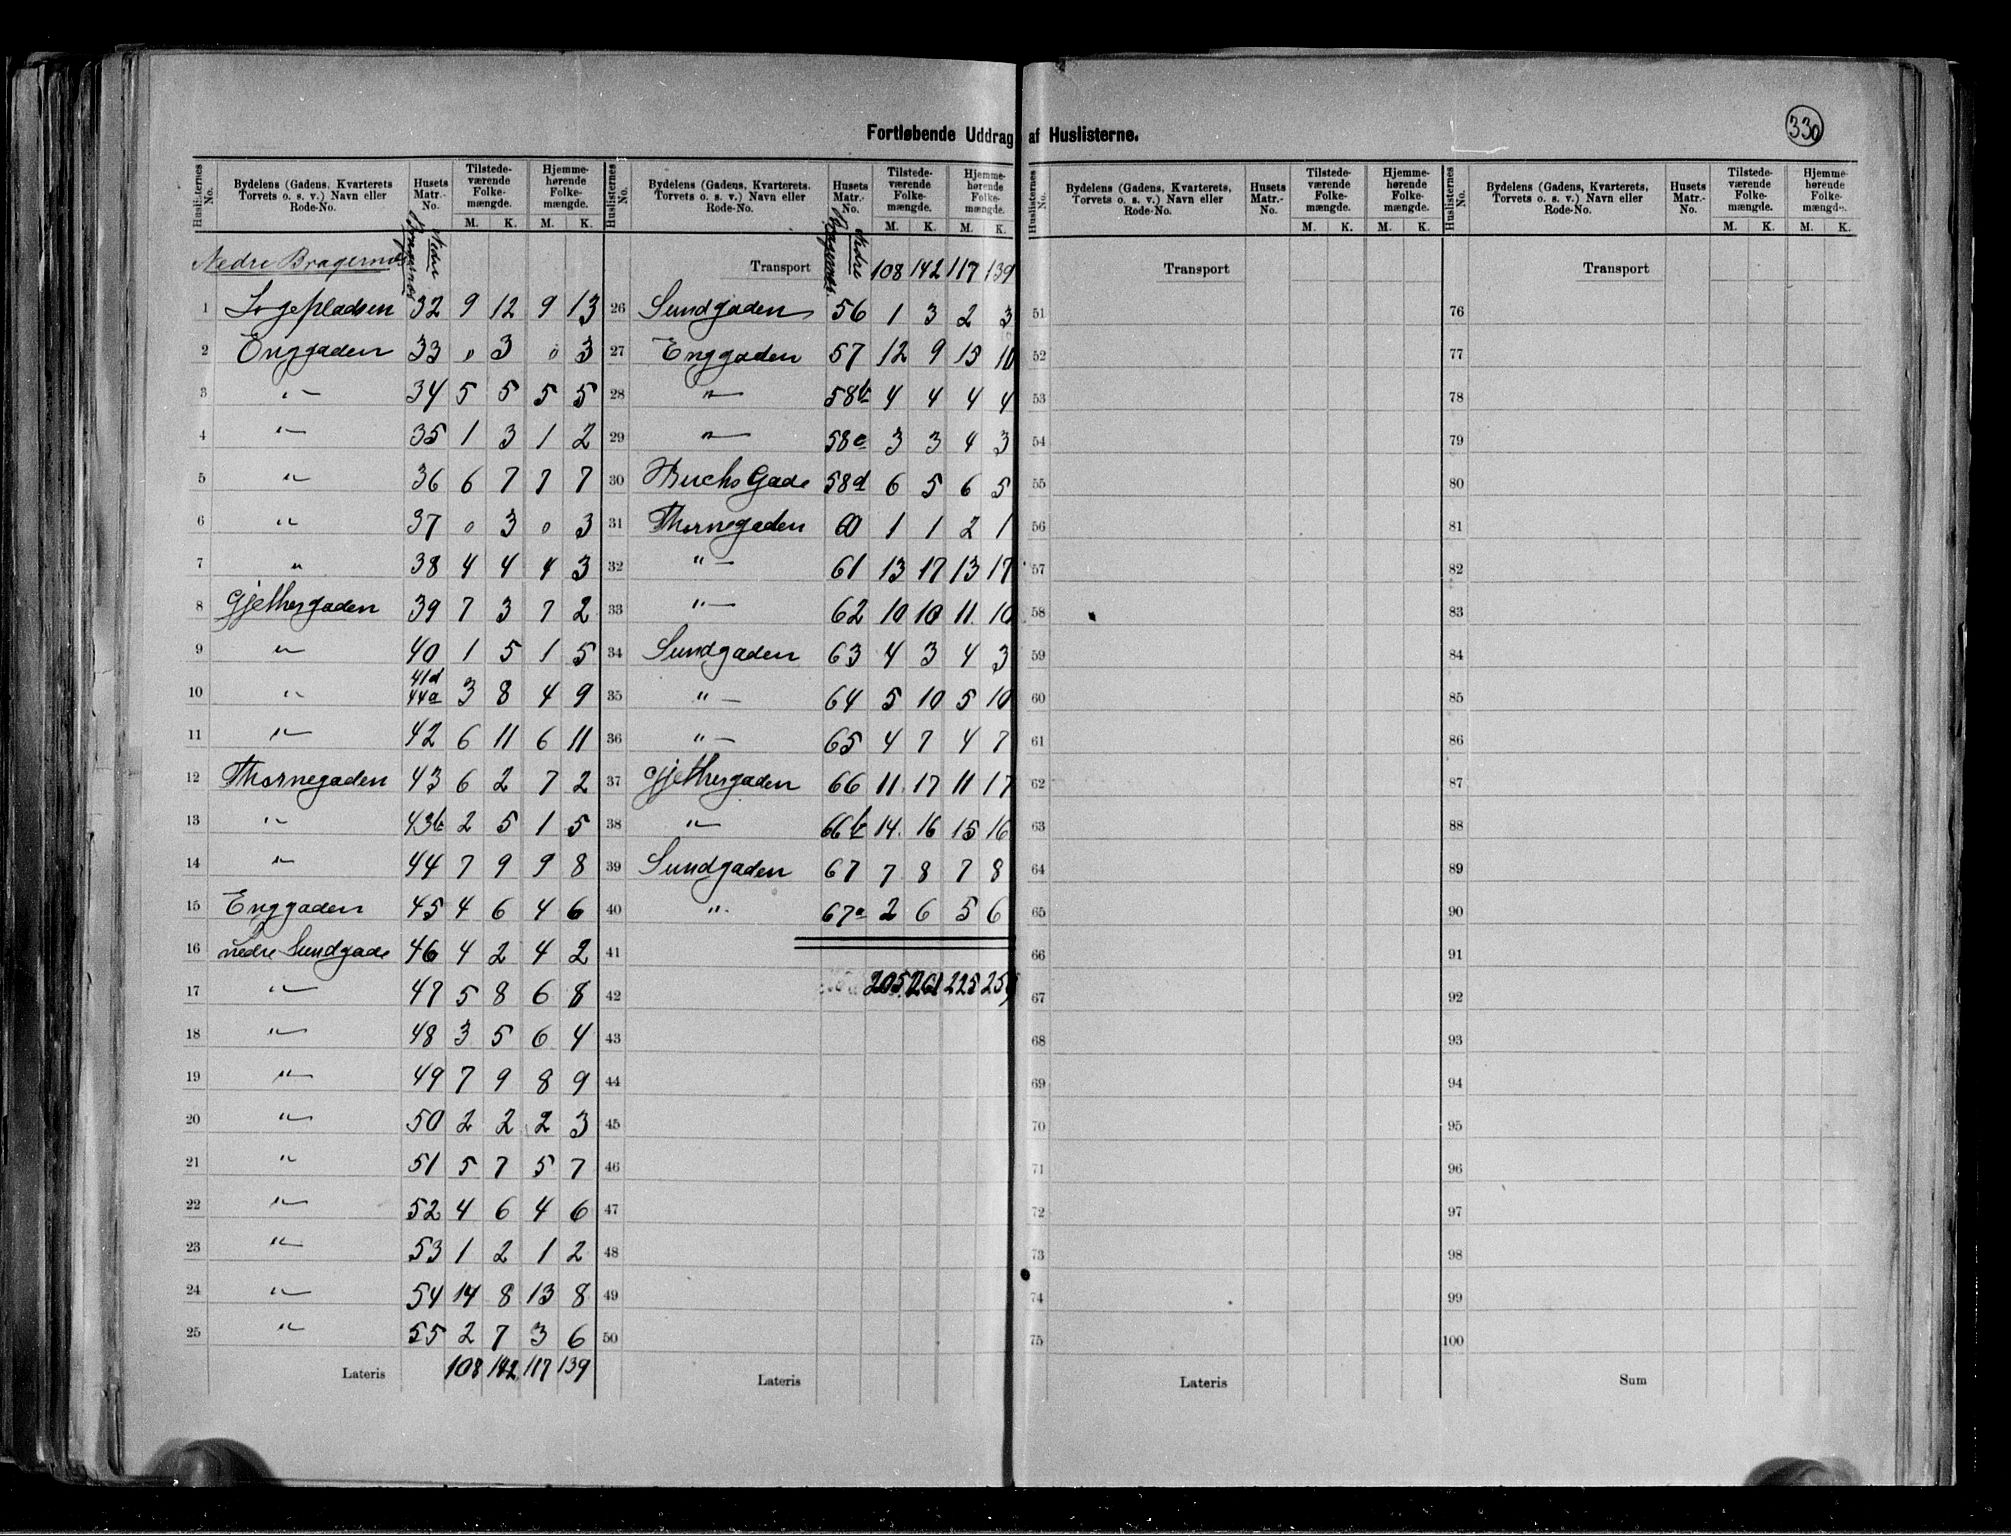 Fortløbende Uddrag af Huslisterne.
330
Huslisternes No. | Bydelens (Gadens, Kvarterets, Torvets o. s. v.) Navn eller Rode-No. | Husets Matr.-No. | Tilstedeværende Folkemængde. M. K. | Hjemmehørende Folkemængde. M. K.
Nedre Bragernæs | Nedre Bragernæs
1 Logepladsen 32 9 12 9 13
2 Enggaden 33 0 3 0 3
3 〃 34 5 5 5 5
4 〃 35 1 3 1 2
5 〃 36 6 7 7 7
6 〃 37 0 3 0 3
7 〃 38 4 4 4 3
8 Gjethergaden 39 7 3 7 2
9 〃 40 1 5 1 5
10 〃 41d 44a 3 8 4 9
11 〃 42 6 11 6 11
12 Thornegaden 43 6 2 7 2
13 〃 43b 2 5 1 5
14 〃 44 7 9 9 8
15 Enggaden 45 4 6 4 6
16 nedre Sundgade 46 4 2 4 2
17 〃 47 5 8 6 8
18 〃 48 3 5 6 4
19 〃 49 7 9 8 9
20 〃 50 2 2 2 3
21 〃 51 5 7 5 7
22 〃 52 4 6 4 6
23 〃 53 1 2 1 2
24 〃 54 14 8 13 8
25 〃 55 2 7 3 6
Lateris 108 142 117 139
Huslisternes No. | Bydelens (Gadens, Kvarterets, Torvets o. s. v.) Navn eller Rode-No. | Husets Matr.-No. | Tilstedeværende Folkemængde. M. K. | Hjemmehørende Folkemængde. M. K.
Transport Nedre Bragernæs 108 142 117 139
26 Sundgaden 56 1 3 2 3
27 Enggaden 57 12 9 15 10
28 〃 58b 4 4 4 4
29 〃 58c 3 3 4 3
30 Buchs Gade 58d 6 5 6 5
31 Thornegaden 60 1 1 2 1
32 〃 61 13 17 13 17
33 〃 62 10 10 11 10
34 Sundgaden 63 4 3 4 3
35 〃 64 5 10 5 10
36 〃 65 4 7 4 7
37 Gjethergaden 66 11 17 11 17
38 〃 66b 14 16 15 16
39 Sundgaden 67 7 8 7 8
40 〃 67a 2 6 5 6
41
42 205 261 225 259
43
44
45
46
47
48
49
50
Lateris
Huslisternes No. | Bydelens (Gadens, Kvarterets, Torvets o. s. v.) Navn eller Rode-No. | Husets Matr.-No. | Tilstedeværende Folkemængde. M. K. | Hjemmehørende Folkemængde. M. K.
Transport
51
52
53
54
55
56
57
58
59
60
61
62
63
64
65
66
67
68
69
70
71
72
73
74
75
Lateris
Huslisternes No. | Bydelens (Gadens, Kvarterets, Torvets o. s. v.) Navn eller Rode-No. | Husets Matr.-No. | Tilstedeværende Folkemængde. M. K. | Hjemmehørende Folkemængde. M. K.
Transport
76
77
78
79
80
81
82
83
84
85
86
87
88
89
90
91
92
93
94
95
96
97
98
99
100
Sum